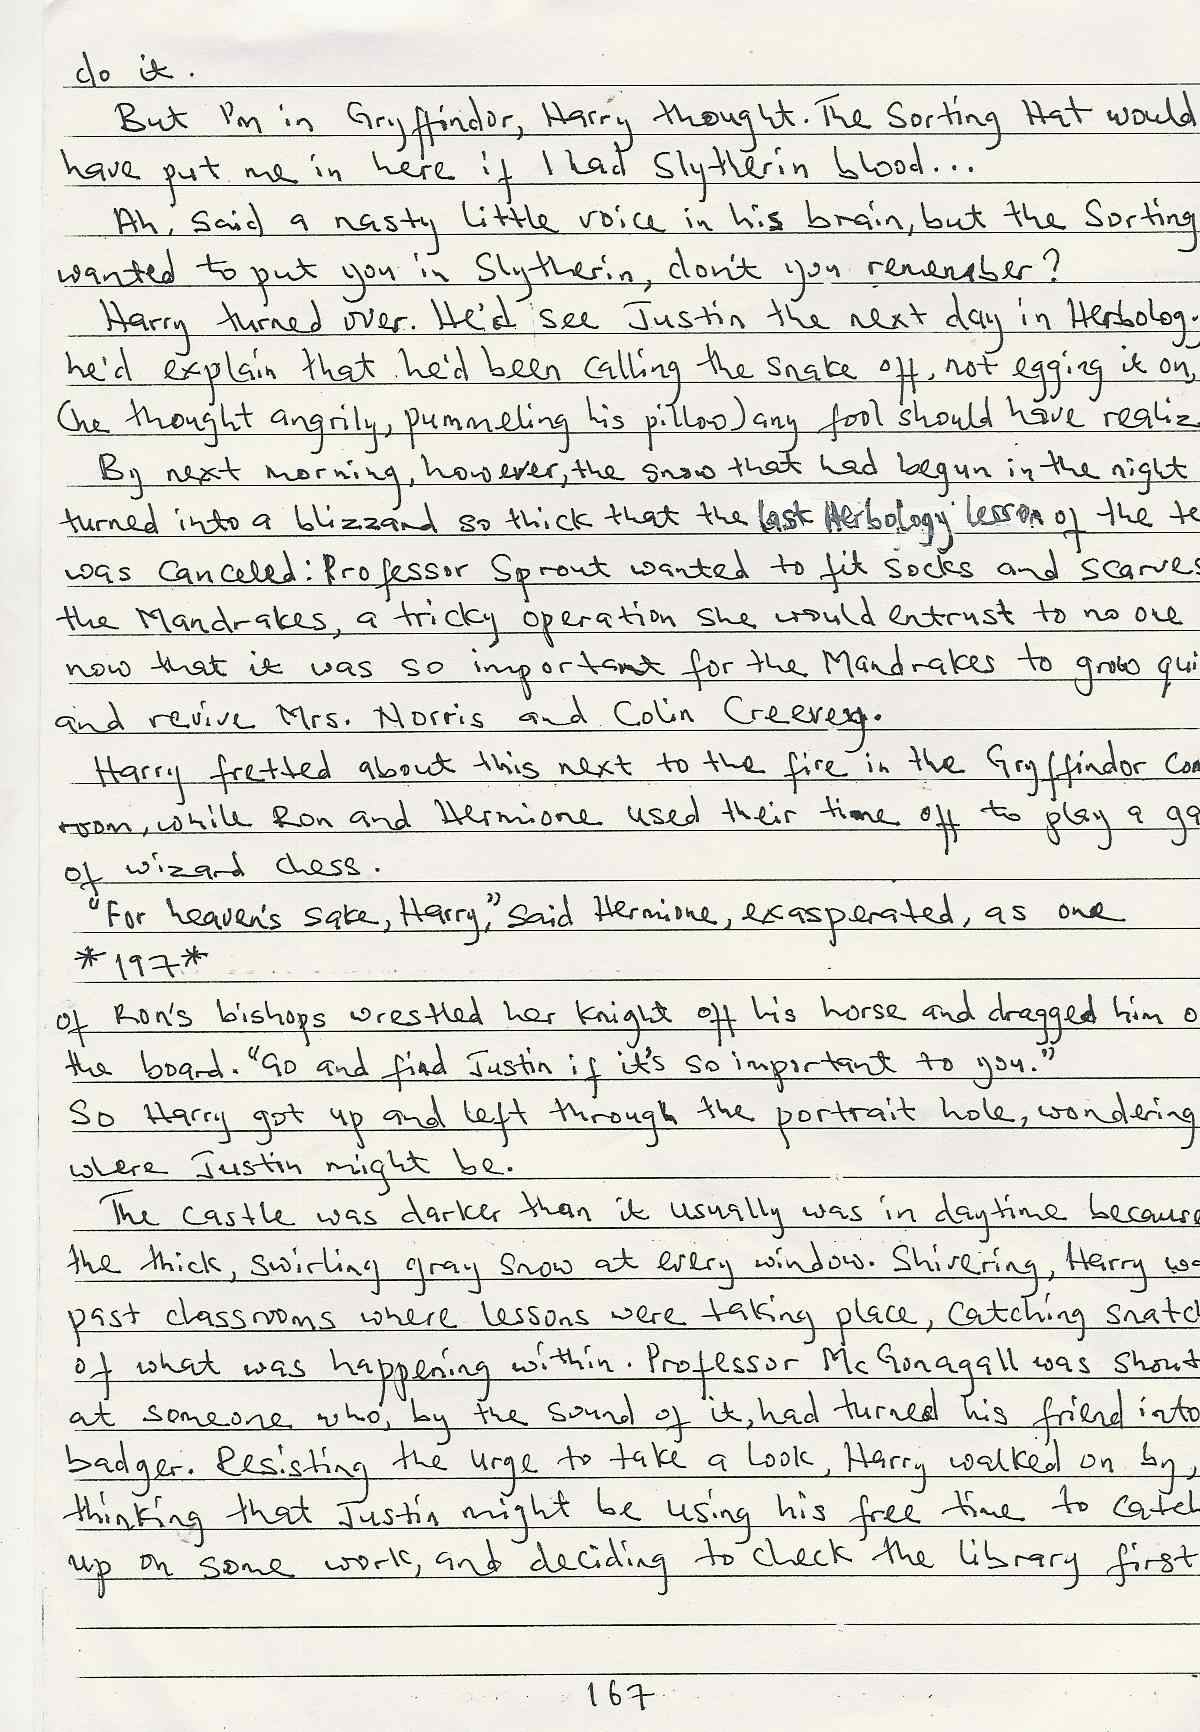 do it.
But I'm in Gryffindor, Harry thought. The Sorting Hat would
have put me in here if I had Slytherin blood...
Ah, said a nasty little voice in his brain, but the Sorting
wanted to put you in Slytherin, don't you remember?
Harry turned over. He'd see Justin the next day in Herbolog
he'd explain that he'd been calling the snake off, not egging it on,
(he thought angrily, pummeling his pillow) any fool should have realiz
By next morning, however, the snow that had begun in the night
turned into a blizzard so thick that the last Herbology lesson of the te
was canceled: Professor Sprout wanted to fit socks and scarves
the Mandrakes, a tricky operation she would entrust to no one
now that it was so important for the Mandrakes to grow qui
and revive Mrs. Norris and Colin Creevey.
Harry fretted about this next to the fire in the Gryffindor Com
room, while Ron and Hermione used their time off to play a ga
of wizard chess.
"For heaven's sake, Harry," said Hermione, exasperated, as one
*197*
of Ron's bishops wrestled her knight off his horse and dragged him o
the board. "Go and find Justin if it's so important to you."
So Harry got up and left through the portrait hole, wondering
where Justin might be.
The castle was darker than it usually was in daytime because
the thick, swirling gray snow at every window. Shivering, Harry wa
past classrooms where lessons were taking place, catching snatc
of what was happening within. Professor McGonagall was shout
at someone who, by the sound of it, had turned his friend into
badger. Resisting the urge to take a look, Harry walked on by,
thinking that Justin might be using his free time to catch
up on some work, and deciding to check the library first
167